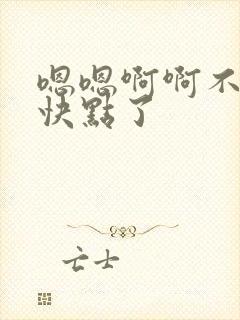 嗯嗯啊啊不
快點了
亡士